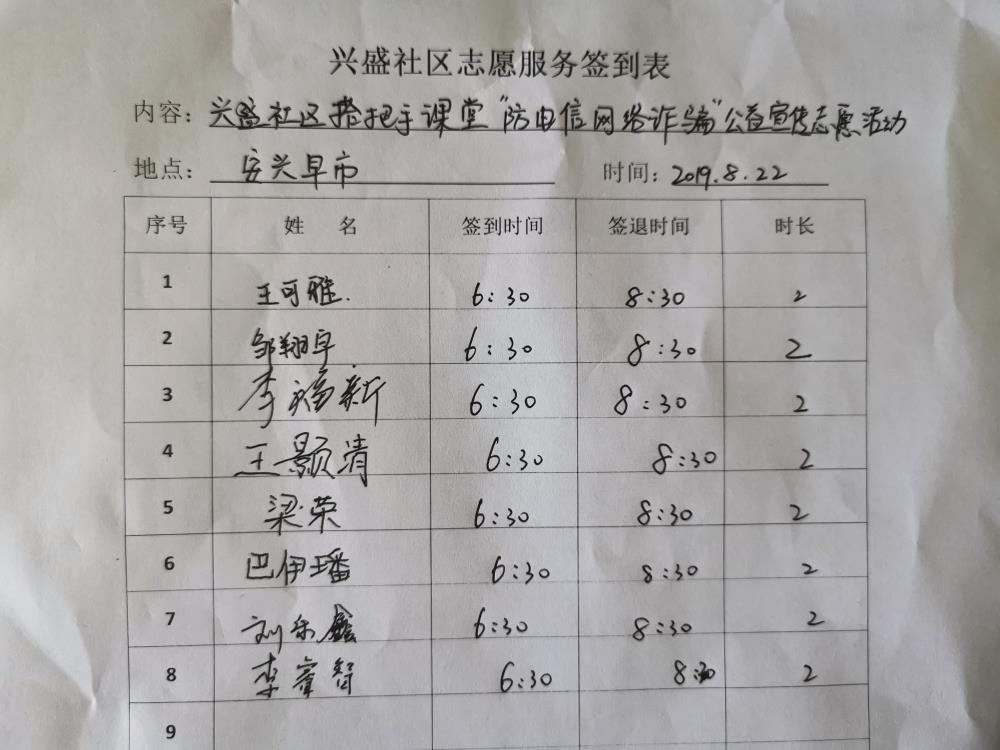 兴盛社区志愿服务签到表
内容：兴盛社区搭把手课堂"防电信网络诈骗"公益宣传志愿活动
地点：安兴早市 时间：2019.8.22
序号 姓 名 签到时间 签退时间 时长
1 王可雅. 6:30 8:30 2
2 邹翔宇 6:30 8:30 2
3 李福新 6:30 8:30 2
4 王颢清 6:30 8:30 2
5 梁荣 6:30 8:30 2
6 巴伊璠 6:30 8:30 2
7 刘乐鑫 6:30 8:30 2
8 李睿智 6:30 8:30 2
9